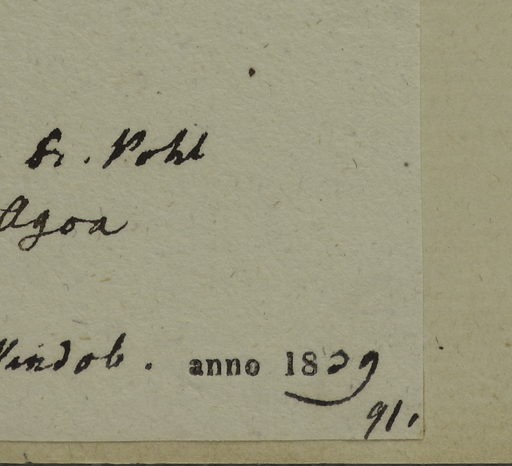 Dr. Pohl
Agoa
Vindob. anno 1839
91.